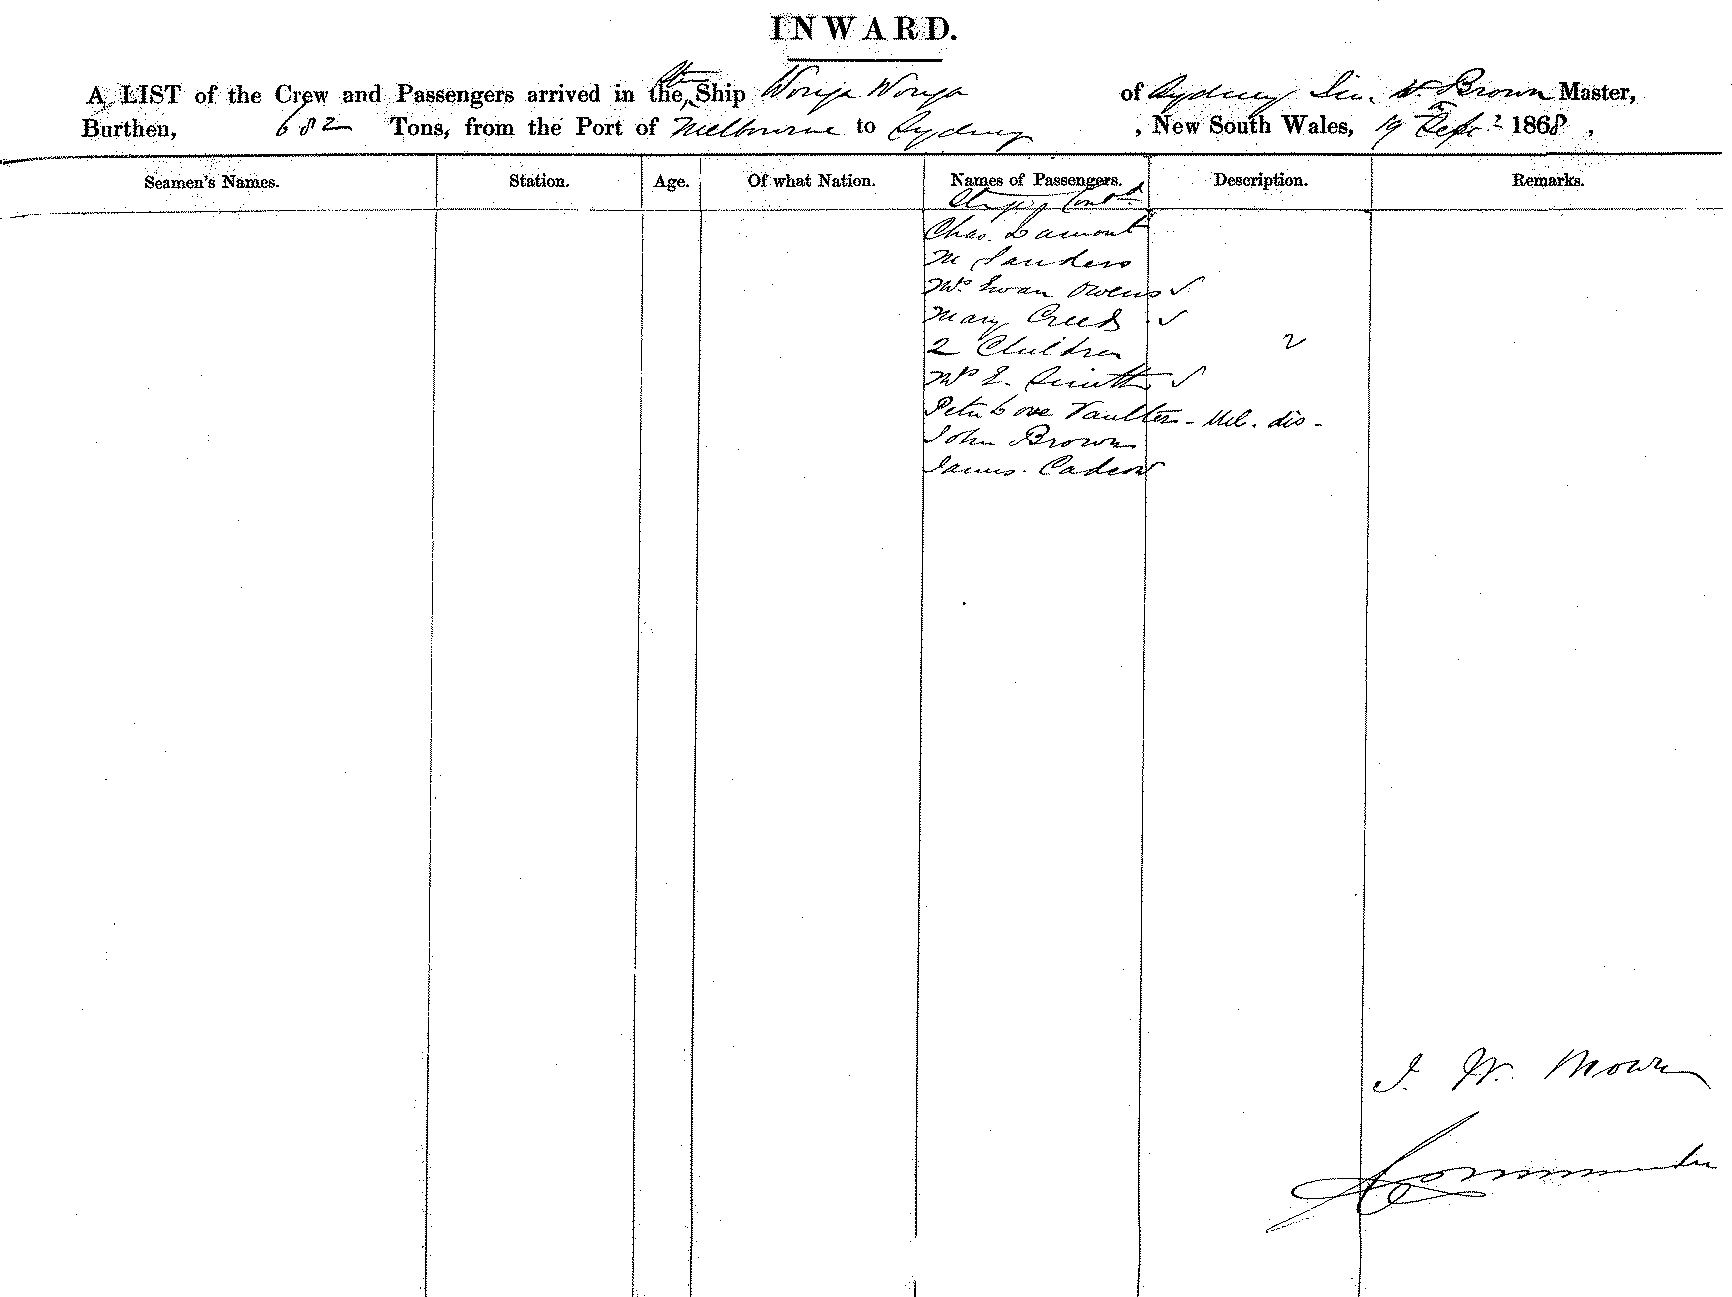 INWARD.
A LIST of the Crew and Passengers arrived in the Stm Ship Wonga Wonga of Sydney W. Brown Master,
Burthen, 682 Tons, from the Port of Melbourne to Sydney, New South Wales, 19 Sepr 1868,
Seamen's Names. Station. Age. Of what Nation. Names of Passengers. Description. Remarks.
Contd
Chas. Lamont
M Sanders
Mrs Ewan Owens ✓
Mary Creed ✓
2 Children 2
Mrs E. Smith ✓
Peter Cove Vaulters - dis -
John Brown
James
J. W. Brown
Commander